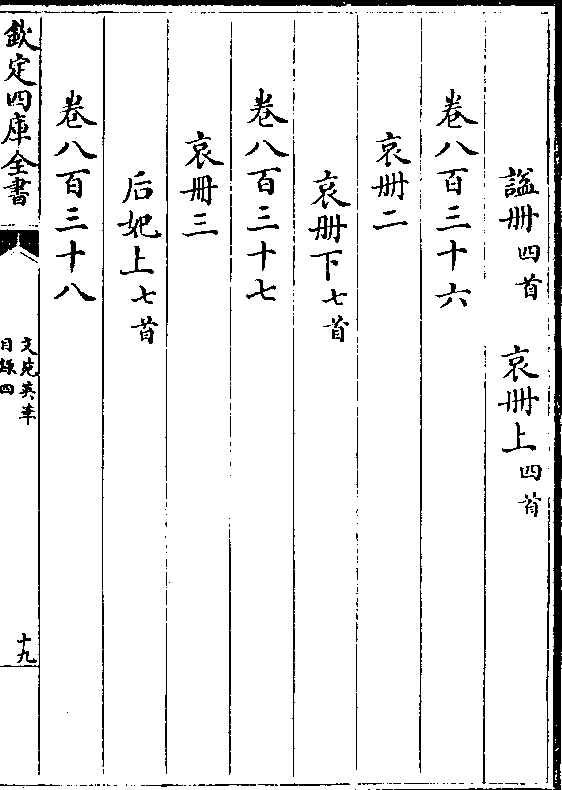 諡冊四首　哀冊上四首
卷八百三十六
哀冊二
哀冊下七首
卷八百三十七
哀冊三
后妃上七首
卷八百三十八
欽定四庫全書
文苑英華
目錄四
十九